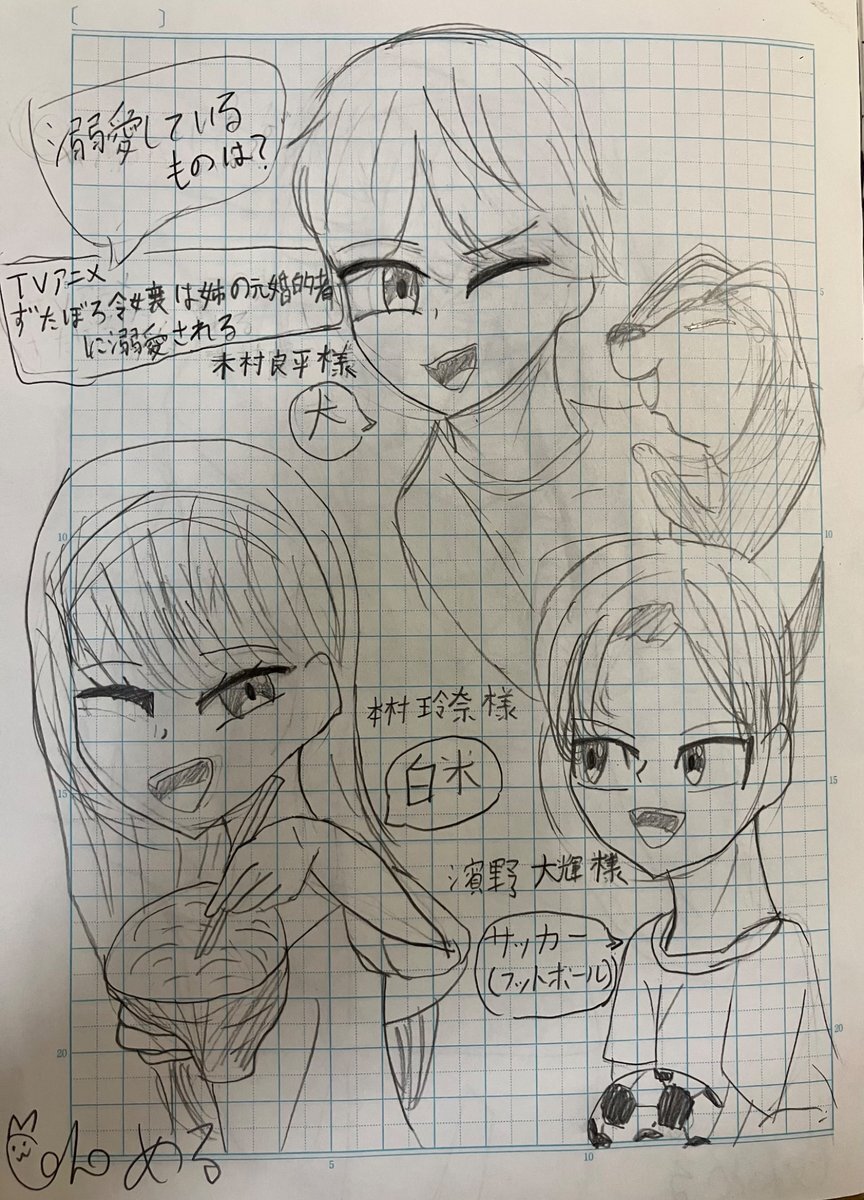 溺愛している
ものは?
TVアニメ
ずたぼろ令嬢は姉の元婚約者
に溺愛される
木村良平様
犬
本村玲奈様
白米
濱野大輝様
サッカー
(フットボール)
5
10
10
15
15
20
20
5
10
める